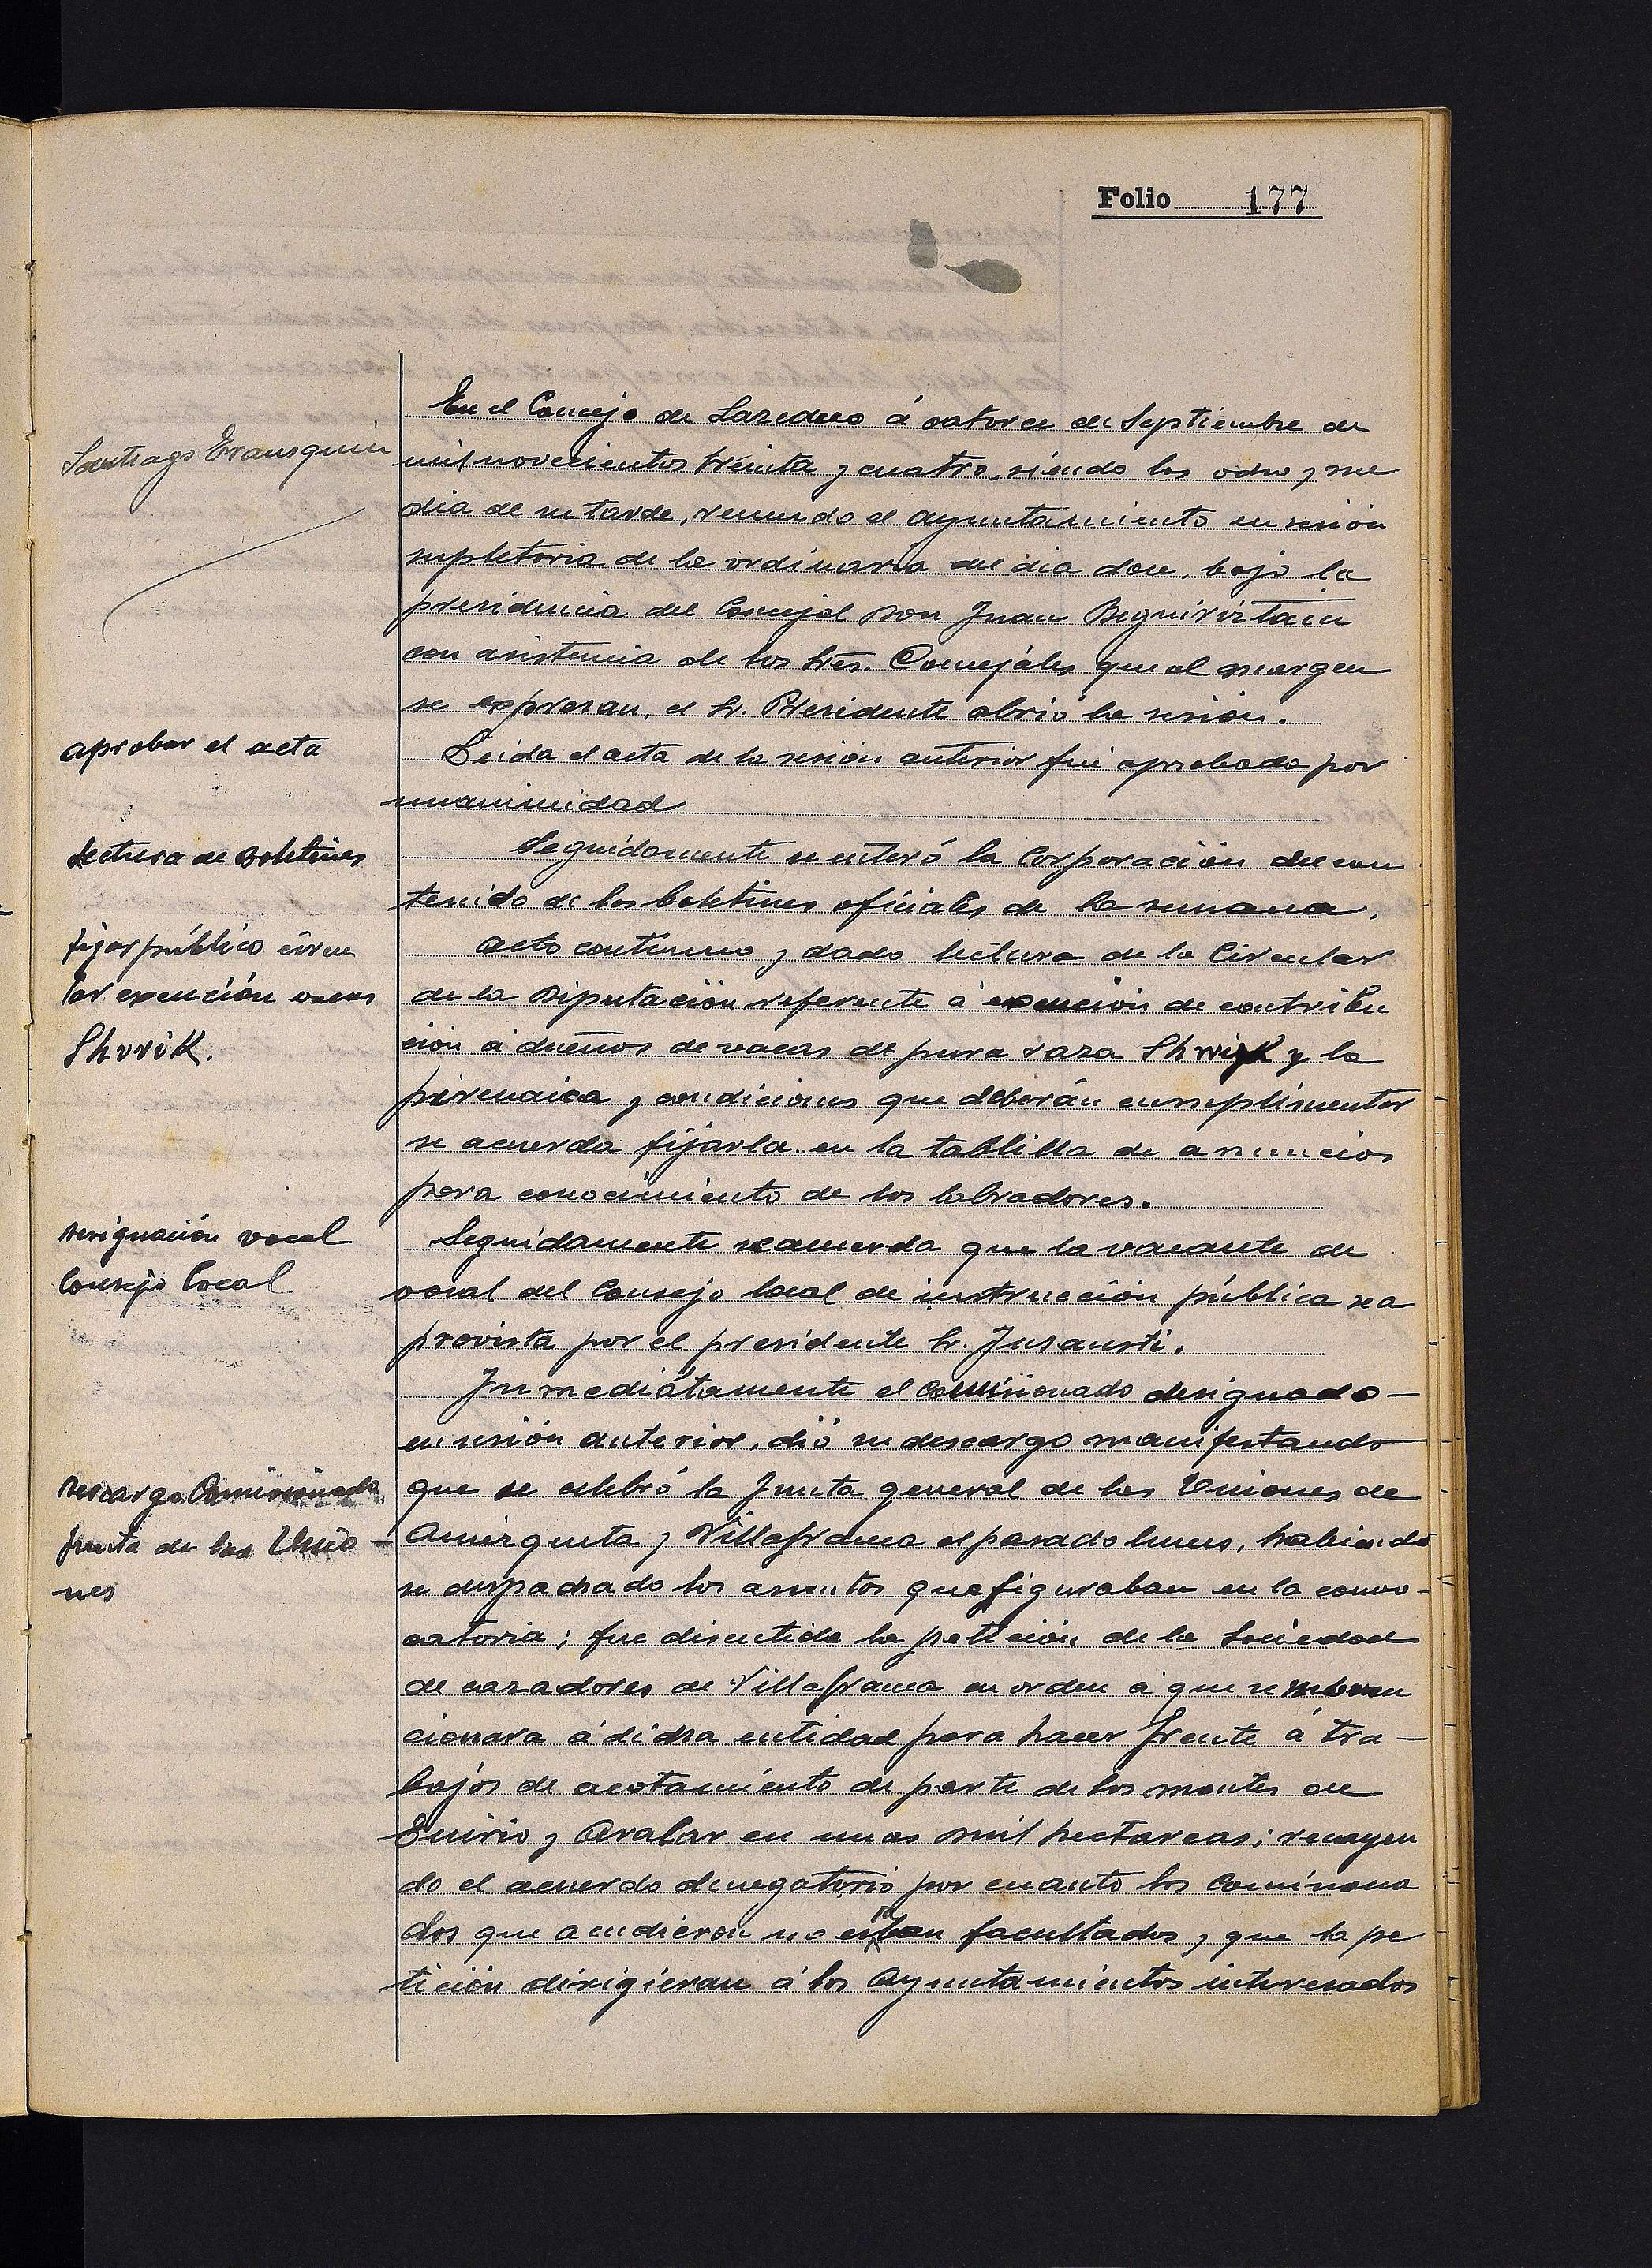 Folio 177
Santiago Erausquin
En el Concejo de Lazcano á catorce de Septiembre de
mil novecientos treinta y cuatro, siendo las ocho y me
dia de su tarde, reunido el Ayuntamiento en sesión
supletoria de la ordinaria del dia doce, bajo la
presidencia del Concejal Don Juan Beguiristain
con asistencia de los Sres. Concejales que al margen
se expresan, el Sr. Presidente abrió la sesión.
aprobar el acta
Leida el acta de la sesión anterior fué aprobada por
unanimidad
Lectura de Boletines
Seguidamente se enteró la Corporación del con
tenido de los boletines oficiales de la semana.
fijar público circu
lar exención vacas
Shvrik.
Acto continuo y dada lectura de la Circular
de la Diputación referente á exención de contribu
ción á dueños de vacas de pura raza Shwizk y la
pirenaica y condiciones que deberán cumplimentar
se acuerda fijarla en la tablilla de anuncios
para conocimiento de los labradores.
Designación vocal
Consejo Local
Seguidamente se acuerda que la vacante de
vocal del Consejo local de instrucción pública sea
provista por el presidente Sr. Jusausti.
Inmediátamente el Comisionado designado -
en sesión anterior, dió su descargo manifestando
Descargo Comisionado
Junta de las Unio -
nes
que se celebró la Junta general de las Uniones de
Amezqueta y Villafranca el pasado lunes, habiendo
se despachado los asuntos que figuraban en la convo -
catoria; fue discutida la petición de la Sociedad
de cazadores de Villafranca en orden á que se subven
cionara á dicha entidad para hacer frente á tra -
bajos de acotamiento de parte de los montes de
Enirio y Aralar en unas mil hectareas; recayen
do el acuerdo denegatorio por cuanto los Comisiona
dos que acudieron no estaban facultados, y que la pe
tición dirigieran á los Ayuntamientos interesados